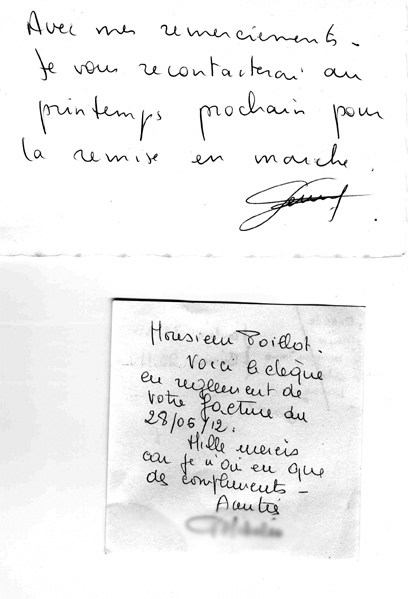 Avec mes remerciements.
Je vous recontacterai au
printemps prochain pour
la remise en marche.
Monsieur Poillot.
Voici le chèque
en reglement de
votre facture du
28/06/12.
Mille mercis
car je n'ai eu que
des compliments -